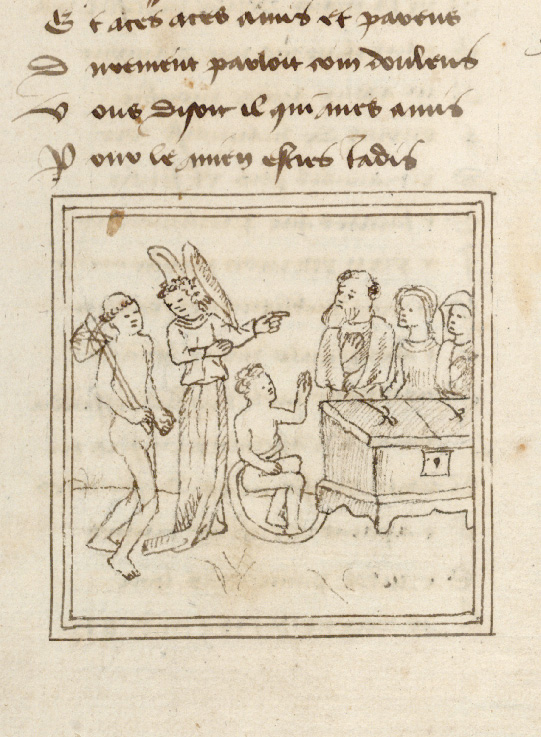 Et a ces aces amis et parens
Durement parloit com doulens
Vous disoit il qui mes amis
Pour le mien esties iadis